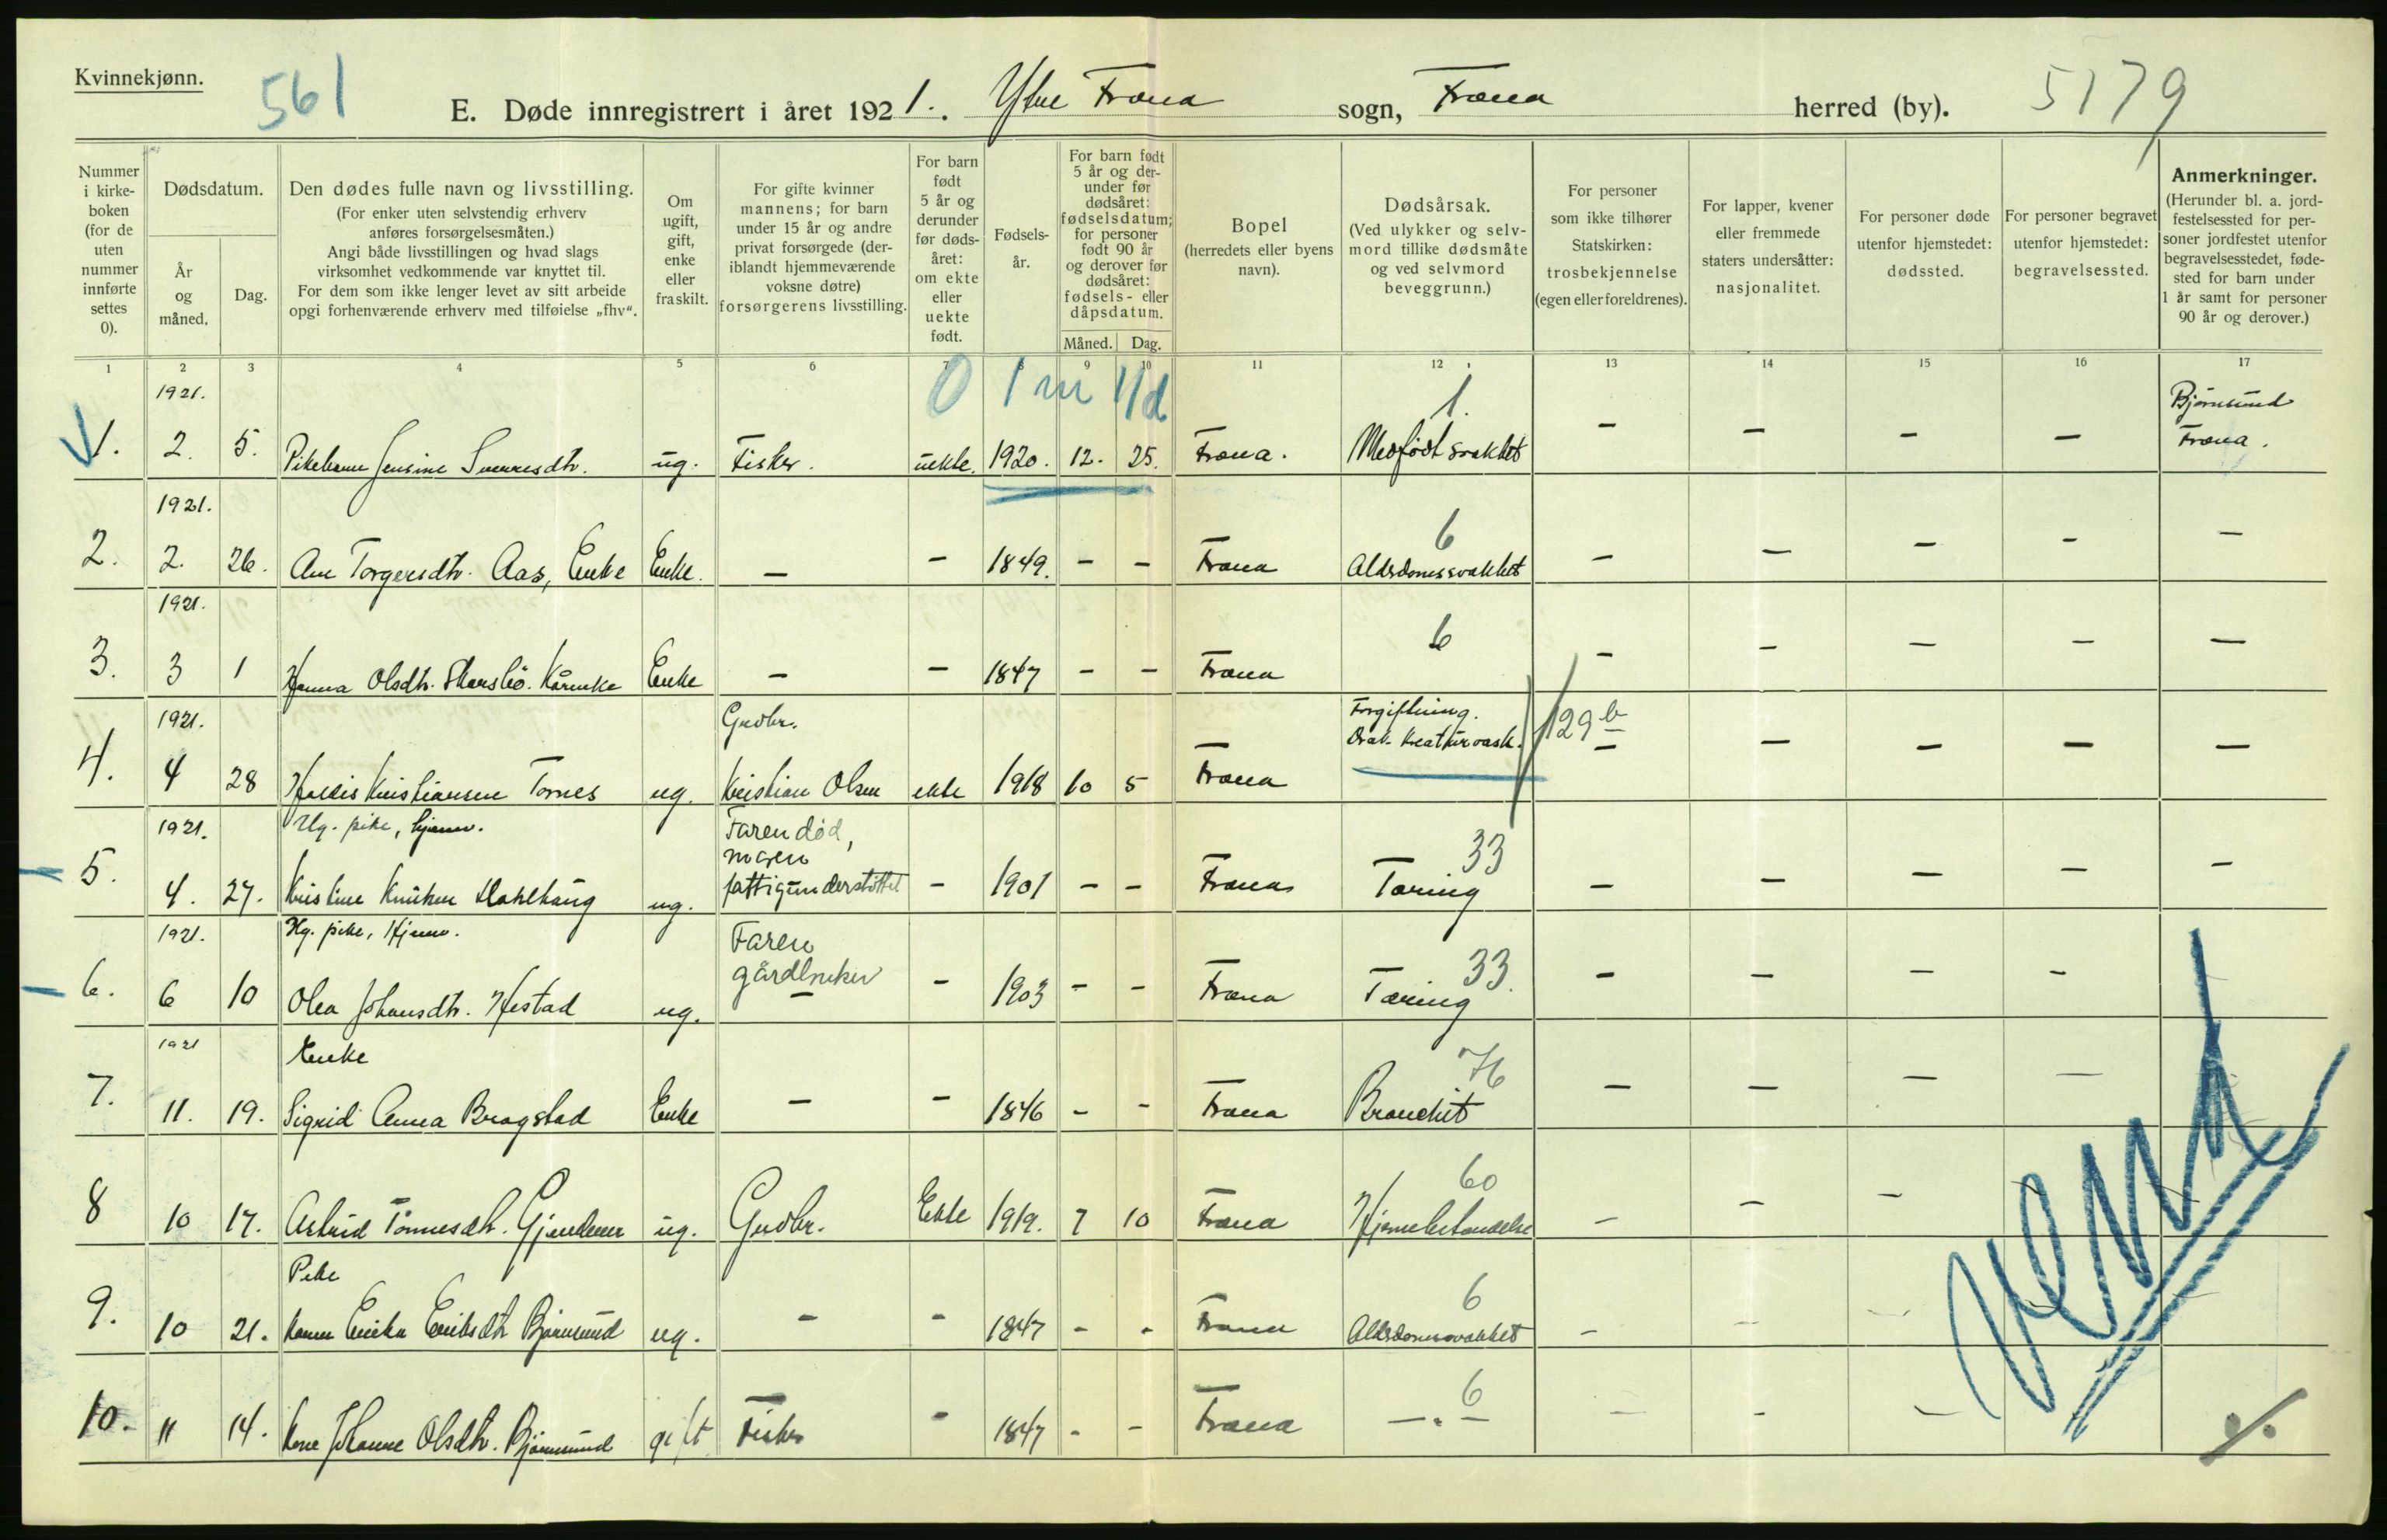 Kvinnekjønn.
561
E. Døde innregistrert i året 1921. Ytre Fræna sogn, Fræna herred (by).
5179
Nummer i kirkeboken (for de uten nummer innførte settes 0).
Dødsdatum.
År og måned.
Dag.
Den dødes fulle navn og livsstilling.
(For enker uten selvstendig erhverv
anføres forsørgelsesmåten.)
Angi både livsstillingen og hvad slags
virksomhet vedkommende var knyttet til.
For dem som ikke lenger levet av sitt arbeide
opgi forhenværende erhverv med tilføielse „fhv“.
Om ugift, gift, enke eller fraskilt.
For gifte kvinner
mannens; for barn
under 15 år og andre
privat forsørgede (der-
iblandt hjemmeværende
voksne døtre)
forsørgerens livsstilling.
For barn født 5 år og derunder før dødsåret: om ekte eller uekte født.
Fødselsår.
For barn født
5 år og der-
under før
dødsåret:
fødselsdatum;
for personer
født 90 år
og derover før
dødsåret:
fødsels- eller
dåpsdatum.
Måned. Dag.
Bopel
(herredets eller byens
navn).
Dødsårsak.
(Ved ulykker og selv-
mord tillike dødsmåte
og ved selvmord
beveggrunn.)
For personer
som ikke tilhører
Statskirken:
trosbekjennelse
(egen eller foreldrenes).
For lapper, kvener
eller fremmede
staters undersåtter:
nasjonalitet.
For personer døde
utenfor hjemstedet:
dødssted.
For personer begravet
utenfor hjemstedet:
begravelsessted.
Anmerkninger.
(Herunder bl. a. jord-
festelsessted for per-
soner jordfestet utenfor
begravelsesstedet, føde-
sted for barn under
1 år samt for personer
90 år og derover.)
1 2 3 4 5 6 7 8 9 10 11 12 13 14 15 16 17
1921. 0 1 m 11 d 1. Bjørnsund
1. 2. 5. Pikebarn Jensine Sverresdtr. ug. Fisker. uekte. 1920. 12. 25. Fræna. Medfødt svakhet – – – – Fræna.
1921. 6
2. 2. 26. Ane Torgersdtr. Aas, Enke Enke. – – 1849. – – Fræna Alderdomssvakhet – – – – –
1921. 6
3. 3 1 Hanna Olsdtr. Kårenke Enke – – 1847 – – Fræna – – – – –
1921. Grdbr. Forgiftning. 129 b
4. 4 28 Kristiansen Tornes ug. Kristian Olsen ekte 1918 10 5 Fræna Drak kreaturvask. – – – – –
1921. Ug. pike, hjemv. Faren død, moren 33
5. 4. 27. Kristine Knutsen Dahlhaug ug. fattigunderstøttet – 1901 – – Fræna Tæring – – – – –
1921. Ug. pike, Hjemv. Faren 33.
6. 6 10 Olea Johansdtr. Hestad ug. gårdbruker – 1903 – – Fræna Tæring – – – –
1921 Enke 76
7. 11. 19. Sigrid Anna Bragstad Enke – – 1846 – – Fræna Bronchit – – – –
60
8 10 17. Astrid Tønnesdtr. ug. Grdbr. Ekte 1919. 7 10 Fræna – – –
Pike 6
9. 10 21. Karen Erika Eriksdtr Bjørnsund ug. – – 1847 – – Fræna Alderdomssvakhet – – –
6
10. 11 14. Johanne Olsdtr. Bjørnsund gift Fisker – 1847 – – Fræna – " – – – –
%